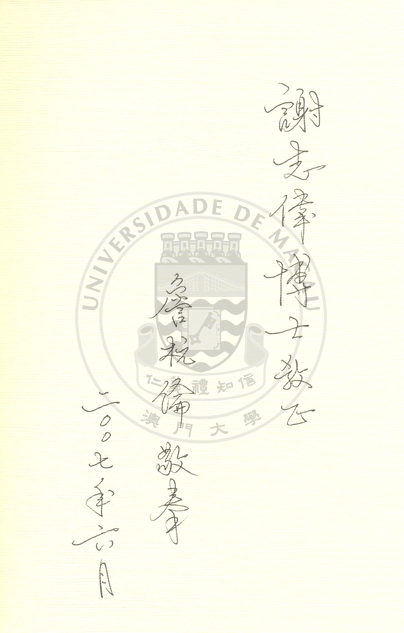 謝志偉博士教正
詹杭倫敬奉
二〇〇七年六月
UNIVERSIDADE DE MACAU
仁義禮知信
澳門大學